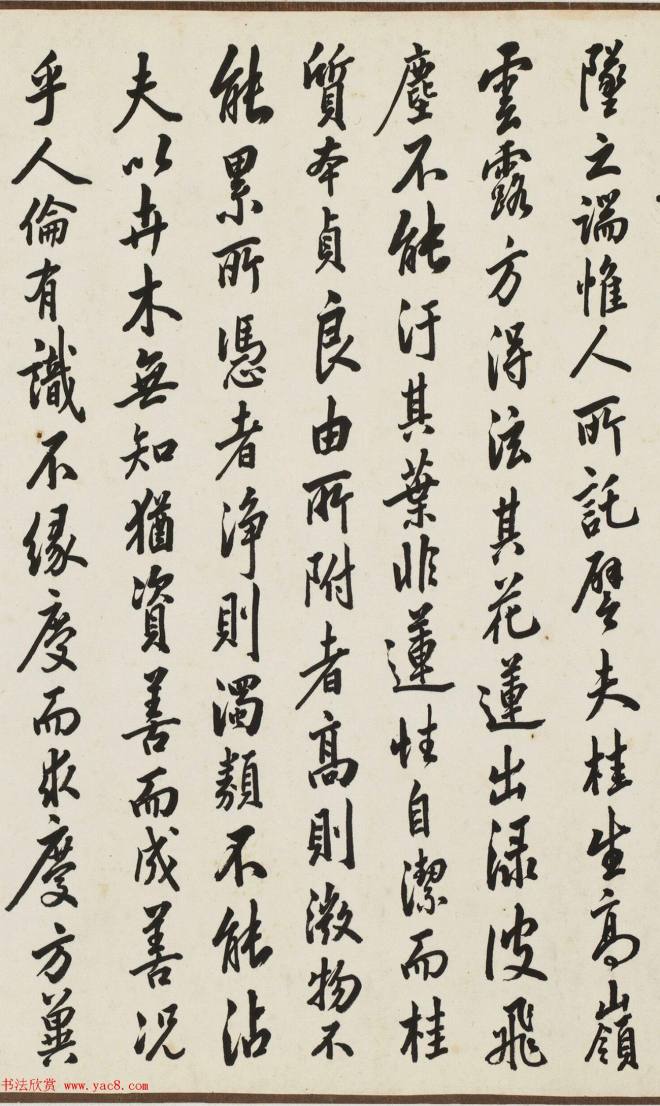 墜之端惟人所託譬夫桂生高嶺
雲露方得泫其花蓮出淥波飛
塵不能汙其葉非蓮性自潔而桂
質本貞良由所附者高則微物不
能累所憑者淨則濁類不能沾
夫以卉木無知猶資善而成善況
乎人倫有識不緣慶而求慶方冀
书法欣赏 www.yac8.com